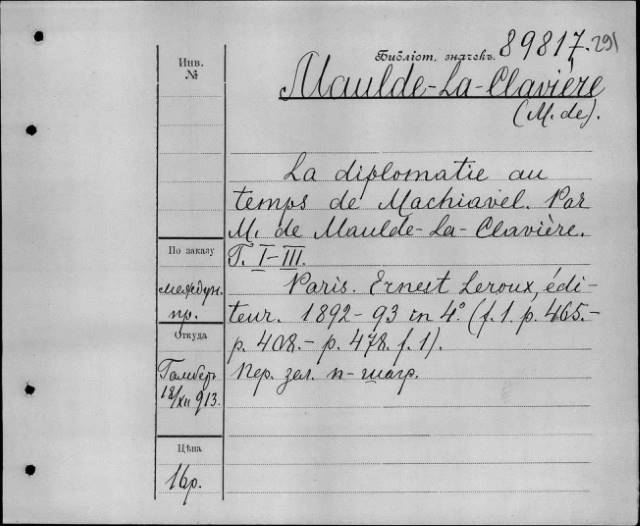 Библіот. значекъ 89817. 291
Maulde-La-Clavière
(M. de).
Инв.
№
La diplomatie au
temps de Machiavel. Par
M. de Maulde-La-Clavière.
T. I-III.
По заказу
междун.
пр.
Paris. Ernest Leroux, édi-
teur. 1892-93 in 4° (f. 1. p. 465.-
p. 408.- p. 478. f. 1).
Откуда
Гамберъ
18/XII 913.
Пер. зел. п-шагр.
Цѣна
16р.